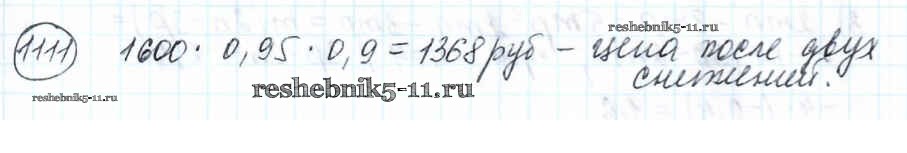 reshebnik5-11.ru
1111 1600 · 0,95 · 0,9 = 1368 руб – цена после двух
снижений.
reshebnik5-11.ru
reshebnik5-11.ru